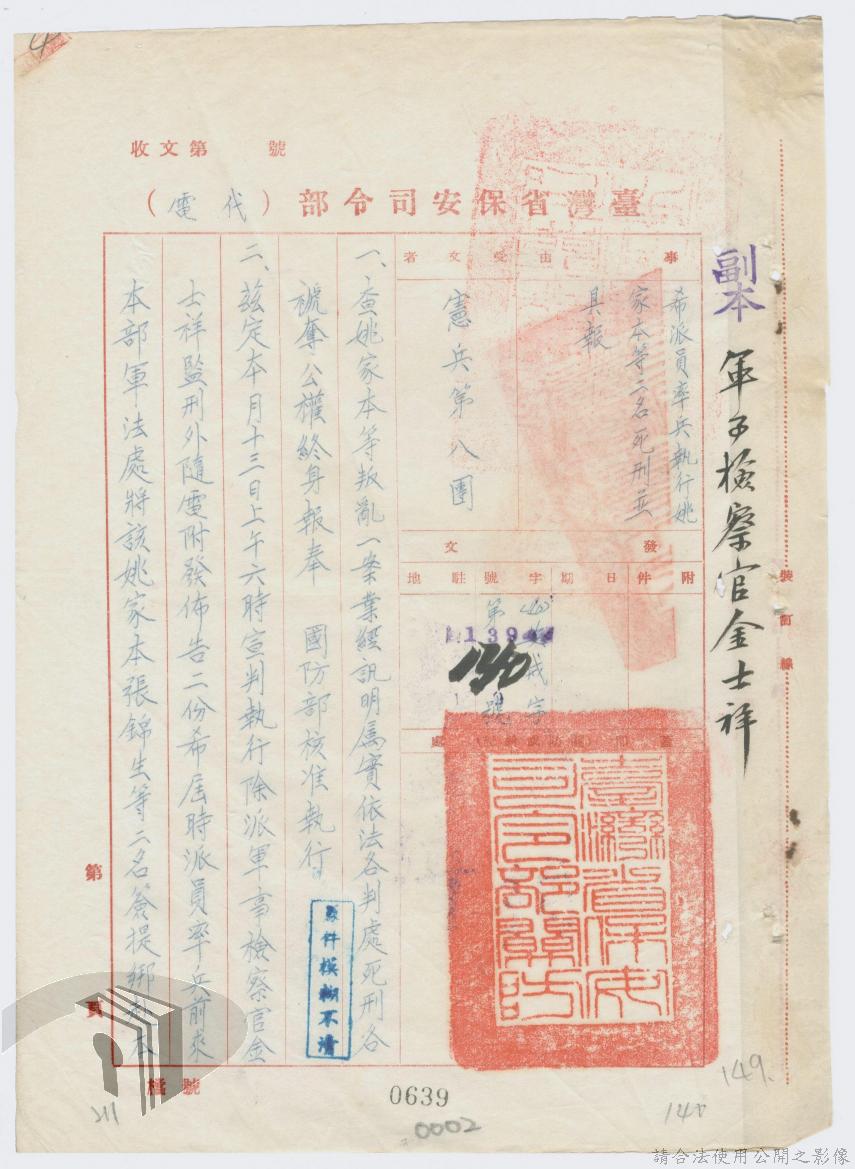 收文第　　號
臺灣省保安司令部（代電）
副本
軍事檢察官金士祥
事由
希派員率兵執行姚
家本等二名死刑並
具報
受文者
憲兵第八團
發文
附件
日期
字號
駐地
字
第
1394
號
一、查姚家本等叛亂一案業經訊明屬實依法各判處死刑各
褫奪公權終身報奉　國防部核准執行。
二、茲定本月十三日上午六時宣判執行除派軍事檢察官金
士祥監刑外隨電附發佈告二份希屆時派員率兵前來
本部軍法處將該姚家本張錦生等二名簽提綁赴本
臺灣省保安司令部關防
原件模糊不清
裝訂線
第
頁
檔號
0639
0002
149.
211
請合法使用公開之影像